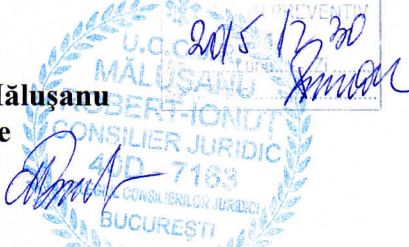 PREVENTIV
2015 12 30
U.G.
MĂLUȘANU
ălușanu
ROBERT-IONUȚ
e
CONSILIER JURIDIC
40D - 7163
CONSILIERILOR JURIDICI
BUCUREȘTI